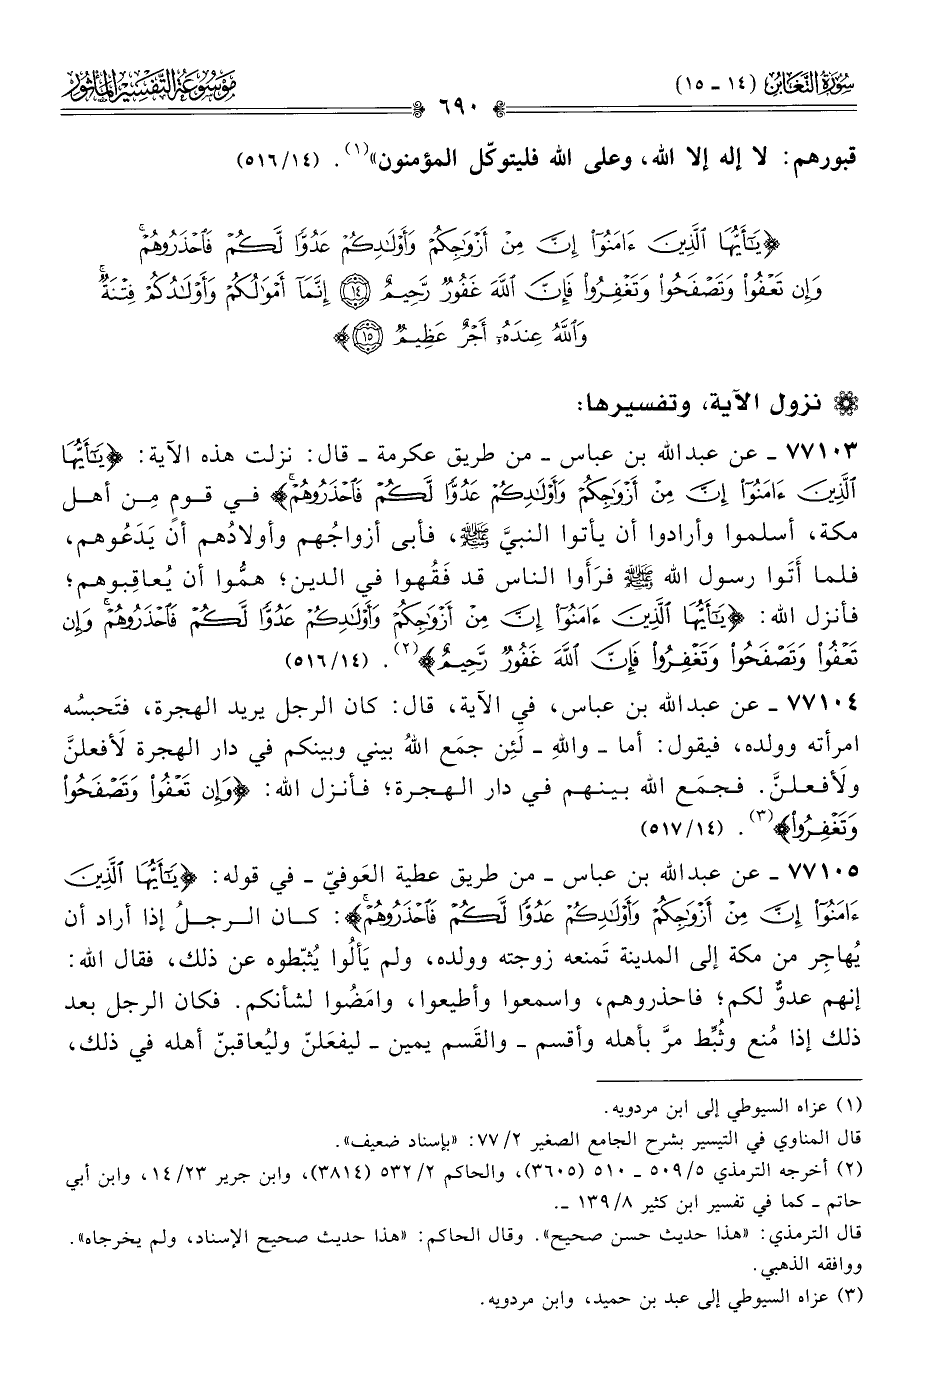 سُورَةُ التَّغَابُن (١٤ - ١٥)
٦٩٠
مَوْسُوعَة التَّفْسِير المَأثُور
قبورهم: لا إله إلا الله، وعلى الله فليتوكّل المؤمنون»(١). (٥١٦/١٤)
﴿يَٰٓأَيُّهَا ٱلَّذِينَ ءَامَنُوٓا۟ إِنَّ مِنْ أَزْوَٰجِكُمْ وَأَوْلَٰدِكُمْ عَدُوًّا لَّكُمْ فَٱحْذَرُوهُمْ ۚ
وَإِن تَعْفُوا۟ وَتَصْفَحُوا۟ وَتَغْفِرُوا۟ فَإِنَّ ٱللَّهَ غَفُورٌ رَّحِيمٌ ١٤ إِنَّمَآ أَمْوَٰلُكُمْ وَأَوْلَٰدُكُمْ فِتْنَةٌ ۚ
وَٱللَّهُ عِندَهُۥٓ أَجْرٌ عَظِيمٌ ١٥﴾
نزول الآية، وتفسيرها:
٧٧١٠٣ - عن عبدالله بن عباس - من طريق عكرمة - قال: نزلت هذه الآية: ﴿يَٰٓأَيُّهَا
ٱلَّذِينَ ءَامَنُوٓا۟ إِنَّ مِنْ أَزْوَٰجِكُمْ وَأَوْلَٰدِكُمْ عَدُوًّا لَّكُمْ فَٱحْذَرُوهُمْ ۚ﴾ في قومٍ مِن أهل
مكة، أسلموا وأرادوا أن يأتوا النبيَّ ﷺ، فأبى أزواجُهم وأولادُهم أن يَدَعُوهم،
فلما أَتَوا رسول الله ﷺ فرَأَوا الناس قد فَقُهوا في الدين؛ همُّوا أن يُعاقِبوهم؛
فأنزل الله: ﴿يَٰٓأَيُّهَا ٱلَّذِينَ ءَامَنُوٓا۟ إِنَّ مِنْ أَزْوَٰجِكُمْ وَأَوْلَٰدِكُمْ عَدُوًّا لَّكُمْ فَٱحْذَرُوهُمْ ۚ وَإِن
تَعْفُوا۟ وَتَصْفَحُوا۟ وَتَغْفِرُوا۟ فَإِنَّ ٱللَّهَ غَفُورٌ رَّحِيمٌ﴾(٢). (٥١٦/١٤)
٧٧١٠٤ - عن عبدالله بن عباس، في الآية، قال: كان الرجل يريد الهجرة، فتَحبسُه
امرأته وولده، فيقول: أما - واللهِ - لَئِن جمَع اللهُ بيني وبينكم في دار الهجرة لَأفعلنَّ
ولَأفعلنَّ. فجمَع الله بينهم في دار الهجرة؛ فأنزل الله: ﴿وَإِن تَعْفُوا۟ وَتَصْفَحُوا۟
وَتَغْفِرُوا۟﴾(٣). (٥١٧/١٤)
٧٧١٠٥ - عن عبدالله بن عباس - من طريق عطية العَوفيّ - في قوله: ﴿يَٰٓأَيُّهَا ٱلَّذِينَ
ءَامَنُوٓا۟ إِنَّ مِنْ أَزْوَٰجِكُمْ وَأَوْلَٰدِكُمْ عَدُوًّا لَّكُمْ فَٱحْذَرُوهُمْ ۚ﴾: كان الرجلُ إذا أراد أن
يُهاجِر من مكة إلى المدينة تَمنعه زوجته وولده، ولم يَألُوا يُثبّطوه عن ذلك، فقال الله:
إنهم عدوٌّ لكم؛ فاحذروهم، واسمعوا وأطيعوا، وامَضُوا لشأنكم. فكان الرجل بعد
ذلك إذا مُنع وثُبِّط مرَّ بأهله وأقسم - والقَسم يمين - ليفعَلنّ وليُعاقبنّ أهله في ذلك،
(١) عزاه السيوطي إلى ابن مردويه.
قال المناوي في التيسير بشرح الجامع الصغير ٧٧/٢: «بإسناد ضعيف».
(٢) أخرجه الترمذي ٥٠٩/٥ - ٥١٠ (٣٦٠٥)، والحاكم ٥٣٢/٢ (٣٨١٤)، وابن جرير ١٤/٢٣، وابن أبي
حاتم - كما في تفسير ابن كثير ١٣٩/٨ -.
قال الترمذي: «هذا حديث حسن صحيح». وقال الحاكم: «هذا حديث صحيح الإسناد، ولم يخرجاه».
ووافقه الذهبي.
(٣) عزاه السيوطي إلى عبد بن حميد، وابن مردويه.